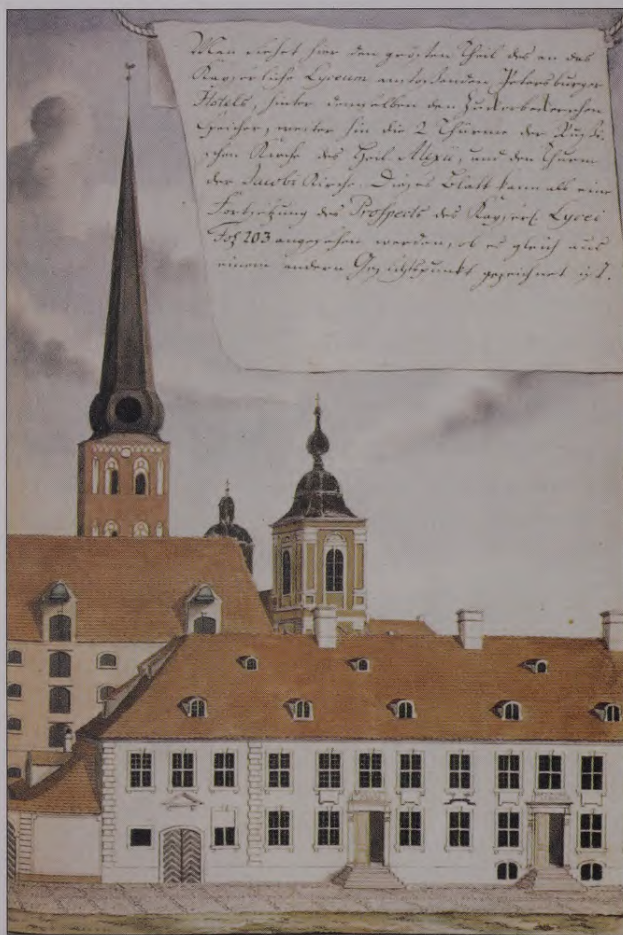 Man siehet hier den grösten Theil des an das
Kayserliche Lyceum anstoßenden Petersburger
Hotels, hinter demselben den Zuckerbeckerschen
Speicher, weiter hin die 2 Thürme der Rußi-
schen Kirche des Heil. Alexii, und den Thurm
der Jacobi Kirche. Dieses Blatt kann als eine
Fortsetzung des Prospects des Kayserl. Lycei
Fol 103 angesehen werden, ob es gleich aus
einem andern Gesichtspunkt gezeichnet ist.